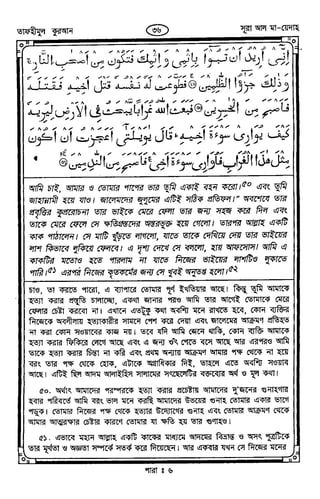 তাফহীমুল কুরআন
৩৬
সূরা আল মা-য়েদাহ
إِنِّىٓ أُرِيدُ أَن تَبُوٓأَ بِإِثْمِى وَإِثْمِكَ فَتَكُونَ مِنْ أَصْحَٰبِ ٱلنَّارِ ۚ
وَذَٰلِكَ جَزَٰٓؤُا۟ ٱلظَّٰلِمِينَ ۝ فَطَوَّعَتْ لَهُۥ نَفْسُهُۥ قَتْلَ أَخِيهِ فَقَتَلَهُۥ
فَأَصْبَحَ مِنَ ٱلْخَٰسِرِينَ ۝ فَبَعَثَ ٱللَّهُ غُرَابًا يَبْحَثُ فِى ٱلْأَرْضِ لِيُرِيَهُۥ
كَيْفَ يُوَٰرِى سَوْءَةَ أَخِيهِ ۚ قَالَ يَٰوَيْلَتَىٰٓ أَعَجَزْتُ أَنْ أَكُونَ
مِثْلَ هَٰذَا ٱلْغُرَابِ فَأُوَٰرِىَ سَوْءَةَ أَخِى ۖ فَأَصْبَحَ مِنَ ٱلنَّٰدِمِينَ ۝
আমি চাই, আমার ও তোমার পাপের ভার তুমি একাই বহন করো।৫০ এবং তুমি
জাহান্নামী হয়ে যাও। জালেমদের জুলুমের এটিই সঠিক প্রতিফল।" অবশেষে তার
প্রবৃত্তির কুপ্ররোচনা তার ভাইকে মেরে ফেলা তার জন্য সহজ করে দিল এবং
তাকে মেরে ফেলে সে ক্ষতিগ্রস্তদের অন্তরভুক্ত হয়ে গেলো। তারপর আল্লাহ একটি
কাক পাঠালেন। সে মাটি খুঁড়তে লাগলো, যাতে তাকে দেখিয়ে দেয় তার ভাইয়ের
লাশ কিভাবে লুকিয়ে ফেলবে। এ দৃশ্য দেখে সে বললো, হায় আফসোস! আমি এ
কাকটির মতোও হতে পারলাম না যাতে নিজের ভাইয়ের লাশটিও লুকাতে
পারি।৫১ এরপর নিজের কৃতকর্মের জন্য সে খুবই অনুতপ্ত হলো।৫২
চাও, তা করতে পারো, এ ব্যাপারে তোমার পূর্ণ ইখতিয়ার আছে। কিন্তু তুমি আমাকে
হত্যা করার প্রস্তুতি চালাচ্ছো, একথা জানার পরও আমি তার আগেই তোমাকে মেরে
ফেলার চেষ্টা করবো না। এখানে এতটুকু কথা অবশ্যি মনে রাখতে হবে, কোন ব্যক্তির
নিজেকে অবলীলায় হত্যাকারীর সামনে পেশ করে দেয়া এবং জালেমের আক্রমণ প্রতিহত
না করা কোন সওয়াবের কাজ নয়। তবে যদি আমি জেনে থাকি, কোন ব্যক্তি আমাকে
হত্যা করার ফিকিরে লেগে আছে এবং এ জন্য ওঁৎ পেতে বসে আছে আর এরপরও আমি
তাকে হত্যা করার চিন্তা না করি এবং প্রথম অন্যায় আক্রমণ আমার পক্ষ থেকে না হয়ে
বরং তার পক্ষ থেকে হোক, এটাকে অগ্রাধিকার দিই, তাহলে এতে অবশ্যি সওয়াব
আছে। এটিই ছিল আদম আলাইহিস সালামের সৎছেলেটির বক্তব্যের অর্থ ও মূল কথা।
৫০. অর্থাৎ আমাদের পরস্পরকে হত্যা করার প্রচেষ্টায় আমাদের দু'জনের গুনাহগার
হবার পরিবর্তে আমি বরং ভাল মনে করছি আমাদের উভয়ের গুনাহ তোমার একার ভাগে
পড়ুক। তোমার নিজের পক্ষ থেকে হত্যার উদ্যোগের গুনাহ এবং তোমার আক্রমণ থেকে
আমার আত্মরক্ষার চেষ্টার কারণে তোমার যা ক্ষতি হয় তার গুণাহও।
৫১. এভাবে মহান আল্লাহ একটি কাকের মাধ্যমে আদমের বিভ্রান্ত ও অসৎ পুত্রটিকে
তার মূর্খতা ও অজ্ঞতা সম্পর্কে সতর্ক করে দিয়েছেন। আর একবার যখন সে নিজের মনের
পারা : ৬